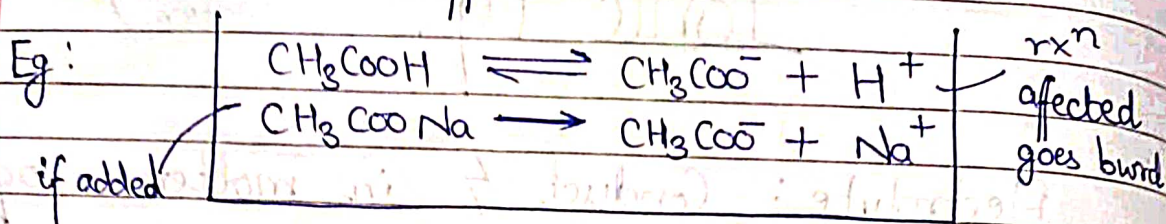 Eg:
CH₃COOH ⇌ CH₃COO⁻ + H⁺
CH₃COONa ⟶ CH₃COO⁻ + Na⁺
if added
rxⁿ
affected
goes bwrd